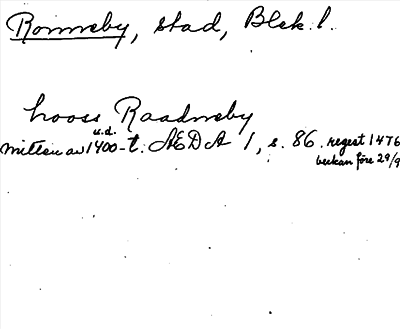 Ronneby, stad, Blek. l.
hooss Raadneby
u.d.
mitten av 1400-t. AEDA 1, s. 86. regest 1476
före 29/9